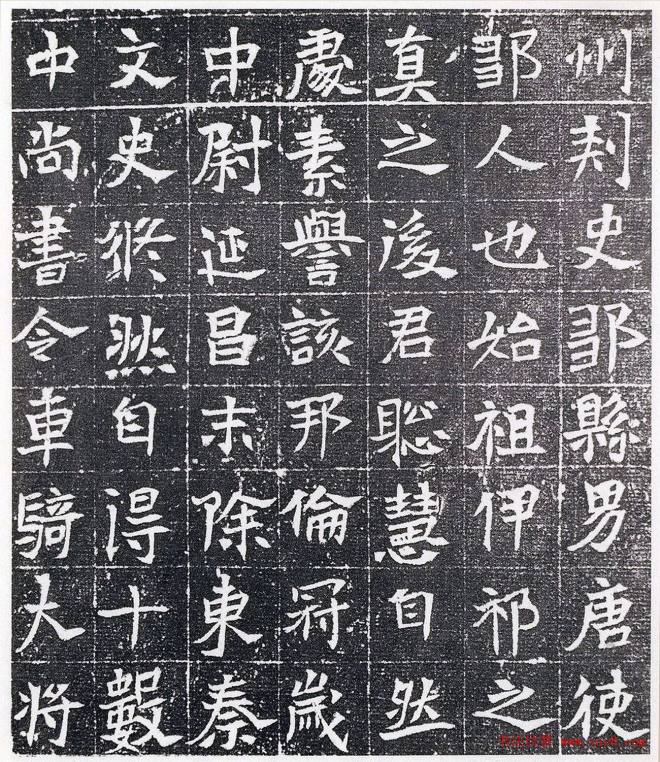 州刾史鄒縣男唐使
鄒人也始祖伊祁之
真之後君聡慧自然
處素譽該邦倫冠歲
中尉延昌末除東秦
文史翛然自得十數
中尚書令車騎大将